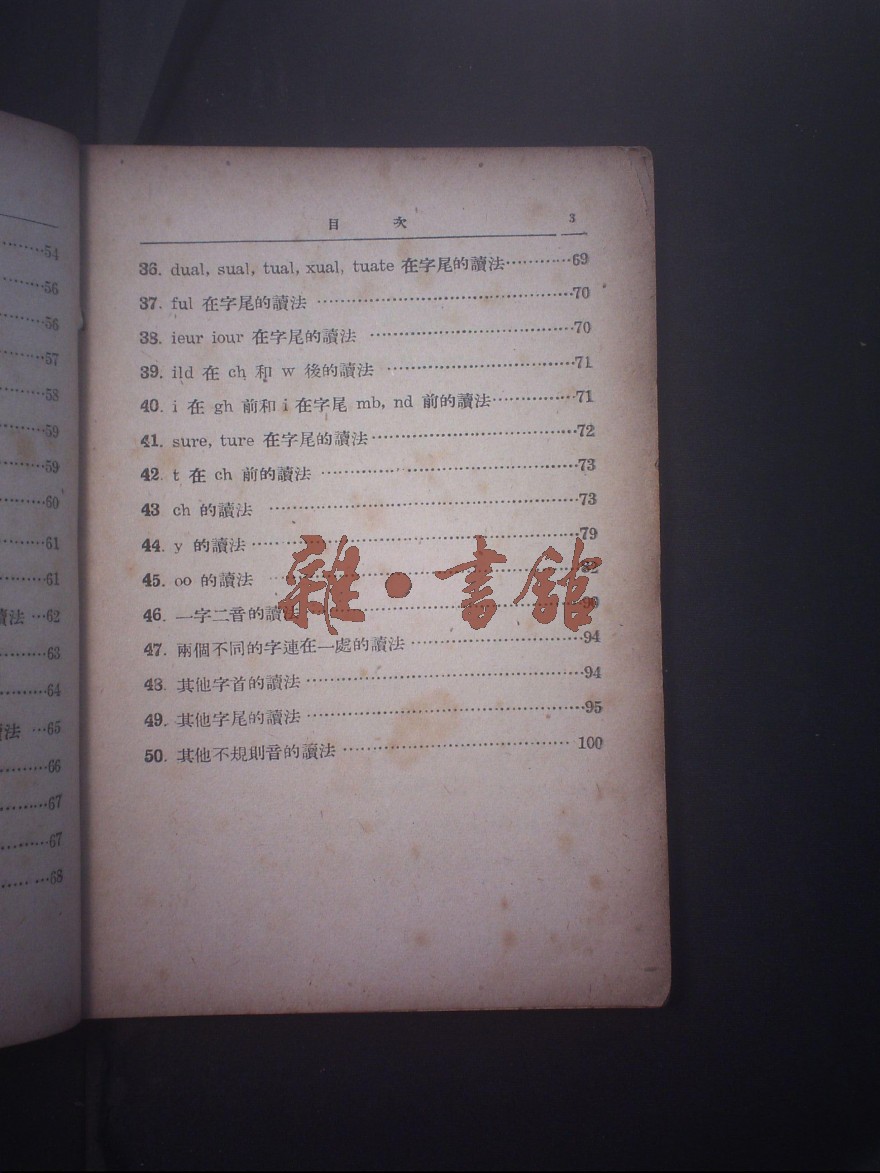 54
56
56
57
58
59
59
60
61
61
讀法 …62
63
64
讀法 …65
66
67
67
68
目 次 3
36. dual, sual, tual, xual, tuate 在字尾的讀法…………69
37. ful 在字尾的讀法 ……………………………70
38. ieur iour 在字尾的讀法 ………………………70
39. ild 在 ch 和 w 後的讀法 ……………………71
40. i 在 gh 前和 i 在字尾 mb, nd 前的讀法……………71
41. sure, ture 在字尾的讀法………………………72
42. t 在 ch 前的讀法 ……………………………73
43 ch 的讀法 …………………………………73
44. y 的讀法……………………………………79
45. oo 的讀法 …………………………………82
46. 一字二音的讀法………………………………90
47. 兩個不同的字連在一處的讀法 …………………94
48. 其他字首的讀法………………………………94
49. 其他字尾的讀法………………………………95
50. 其他不規則音的讀法 ………………………… 100
雜·書館